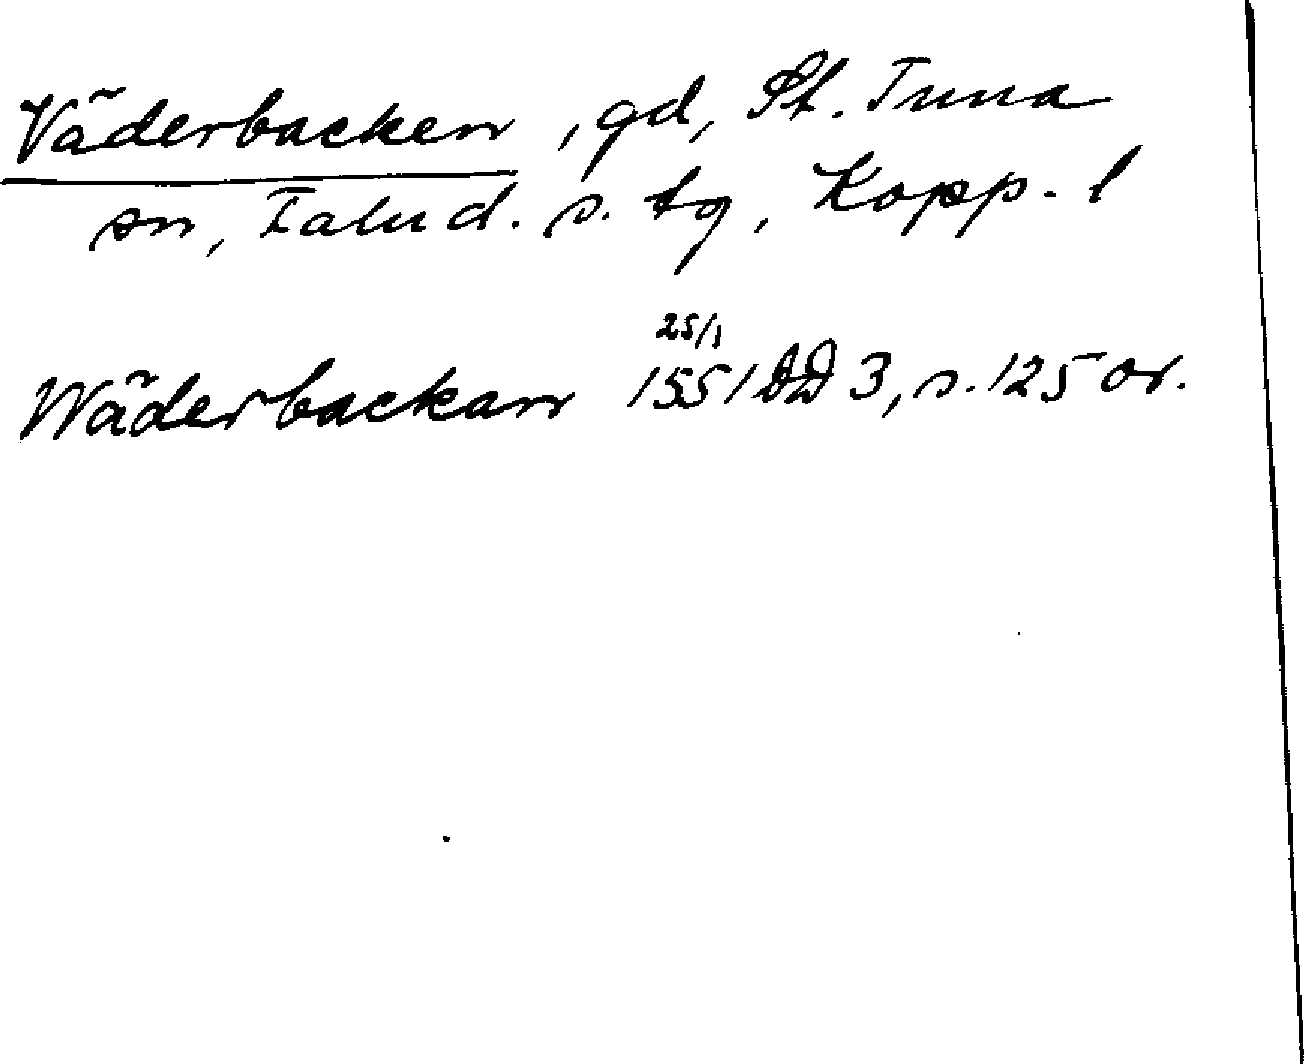 Väderbacken, gd, St. Tuna
sn, Falu d. s. tg, Kopp. l
25/1
Wäderbackan 1551 DD 3, s. 125 or.